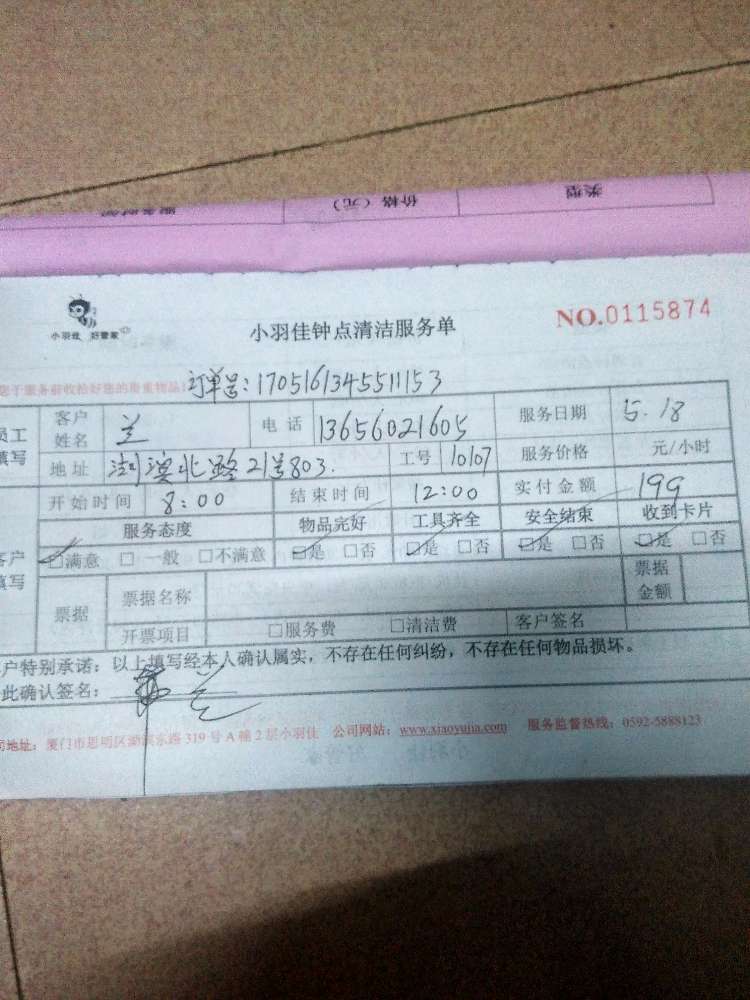 类型 价格（元） 服务时间
小羽佳 好管家
小羽佳钟点清洁服务单
NO.0115874
您于服务前收拾好您的贵重物品！ 订单号：1705161345511153
员工填写 客户姓名 兰 电话 13656021605 服务日期 5.18
地址 湖滨北路21号803. 工号 10107 服务价格 元/小时
开始时间 8:00 结束时间 12:00 实付金额 199
服务态度 物品完好 工具齐全 安全结束 收到卡片
客户填写 ☑满意 □一般 □不满意 ☑是 □否 ☑是 □否 ☑是 □否 ☑是 □否
票据 票据名称 票据金额
开票项目 □服务费 □清洁费 客户签名
户特别承诺：以上填写经本人确认属实，不存在任何纠纷，不存在任何物品损坏。
此确认签名： 兰
司地址：厦门市思明区湖滨东路319号A幢2层小羽佳 公司网站：www.xiaoyujia.com 服务监督热线：0592-5888123